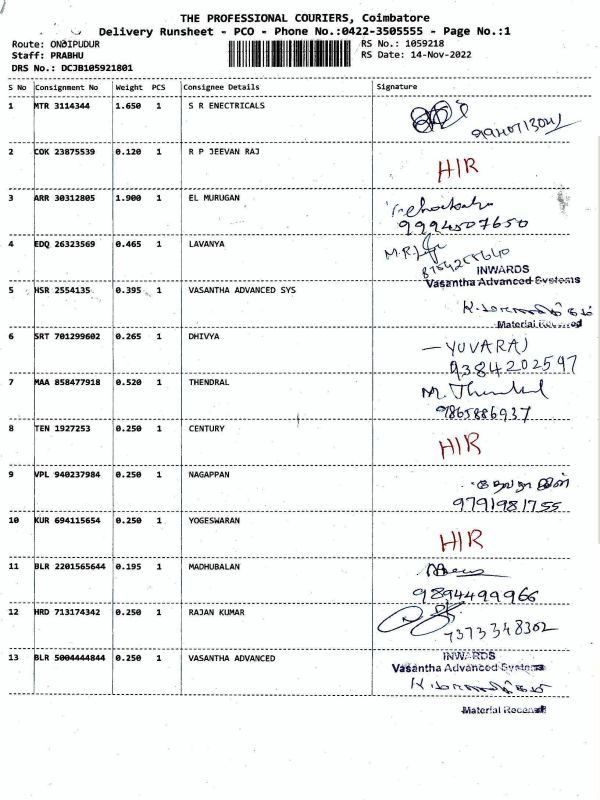 THE PROFESSIONAL COURIERS, Coimbatore
Delivery Runsheet - PCO - Phone No.:0422-3505555 - Page No.:1
Route: ONDIPUDUR RS No.: 1059218
Staff: PRABHU RS Date: 14-Nov-2022
DRS No.: DCJB105921801
S No Consignment No Weight PCS Consignee Details Signature
1 MTR 3114344 1.650 1 S R ENECTRICALS
2 COK 23875539 0.120 1 R P JEEVAN RAJ HIR
3 ARR 30312805 1.900 1 EL MURUGAN
9994507650
4 EDQ 26323569 0.465 1 LAVANYA M.R.
INWARDS
Vasantha Advanced Systems
5 HSR 2554135 0.395 1 VASANTHA ADVANCED SYS
Material Received
6 SRT 701299602 0.265 1 DHIVYA — YUVARAJ
9384202597
7 MAA 858477918 0.520 1 THENDRAL M. Thendral
9865886937
8 TEN 1927253 0.250 1 CENTURY HIR
9 VPL 940237984 0.250 1 NAGAPPAN
9791981755
10 KUR 694115654 0.250 1 YOGESWARAN HIR
11 BLR 2201565644 0.195 1 MADHUBALAN
9894499966
12 HRD 713174342 0.250 1 RAJAN KUMAR
7373348302
13 BLR 5004444844 0.250 1 VASANTHA ADVANCED INWARDS
Vasantha Advanced Systems
Material Received